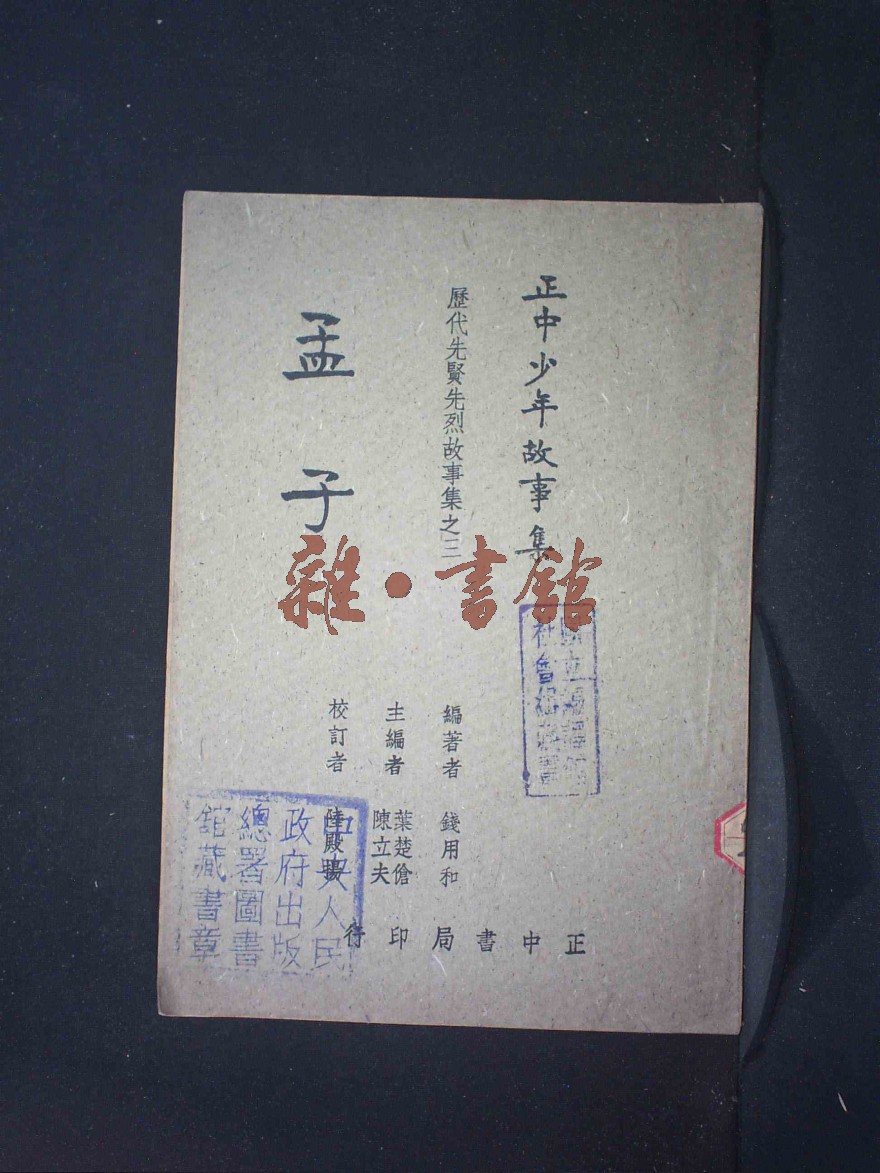 正中少年故事集
歷代先賢先烈故事集之三
孟子
編著者 錢用和
主編者 葉楚傖 陳立夫
校訂者 陸殿揚
正中書局印行
雜·書館
中央人民
政府出版
總署圖書
館藏書章
國立編譯館
社會組藏書